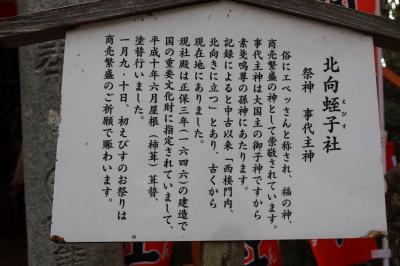 北向蛭子社
えびす
祭神 事代主神
俗にエベッさんと称され、福の神、
商売繁盛の神として崇敬されています。
事代主神は大国主の御子神ですから
素戔嗚尊の孫神にあたります。
記録によると中古以来「西楼門内、
北向きに立つ」とあり、古くから
現在地にありました。
現社殿は正保三年(一六四六)の建造で
国の重要文化財に指定されていまして、
平成十年六月屋根(柿葺)葺替、
塗替行いました。
一月九・十日、初えびすのお祭りは
商売繁盛のご祈願で賑わいます。